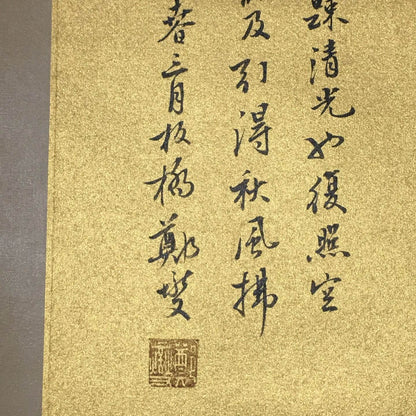 踈清光如復照空
及引得秋風拂
春三月板橋鄭燮